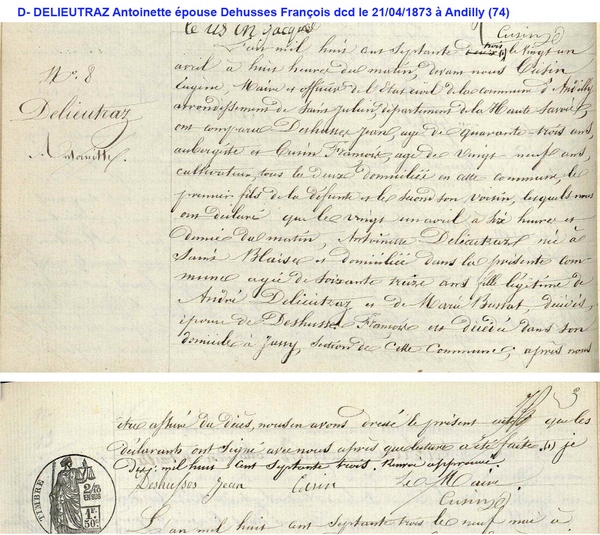 D- DELIEUTRAZ Antoinette épouse Dehusses François dcd le 21/04/1873 à Andilly (74)
Cusin
N.° 8
Delieutraz
Antoinette
L'an mil huit cent septante trois (1) le vingt un
avril à huit heures du matin, devant nous Cusin
Eugène, Maire et officier de l'état civil de la commune d'Andilly
arrondissement de Saint Julien, département de la Haute Savoie,
ont comparu Deshusses Jean, âgé de quarante trois ans,
aubergiste et Cusin François, âgé de vingt neuf ans,
cultivateur, tous les deux domiciliés en cette commune, le
premier fils de la défunte et le second son voisin, lesquels nous
ont déclaré que le vingt un avril à six heures et
demie du matin, Antoinette Delieutraz, née à
Saint Blaise et domiciliée dans la présente com-
mune âgée de soixante treize ans, fille légitime de
André Delieutraz et de Marie Bussat, décédés,
épouse de Deshusses François est décédée dans son
domicile à Jussy, section de cette Commune, après nous
3
être assuré du décès, nous en avons dressé le présent que les
déclarants ont signé avec nous après que lecture a été faite. (1) je
dis mil huit cent septante trois. Renvoi approuvé
Deshusses Jean Cusin Le Maire
Cusin
TIMBRE
2/10
EN SUS
1F.
50c.
L'an mil huit cent septante trois le neuf mai à